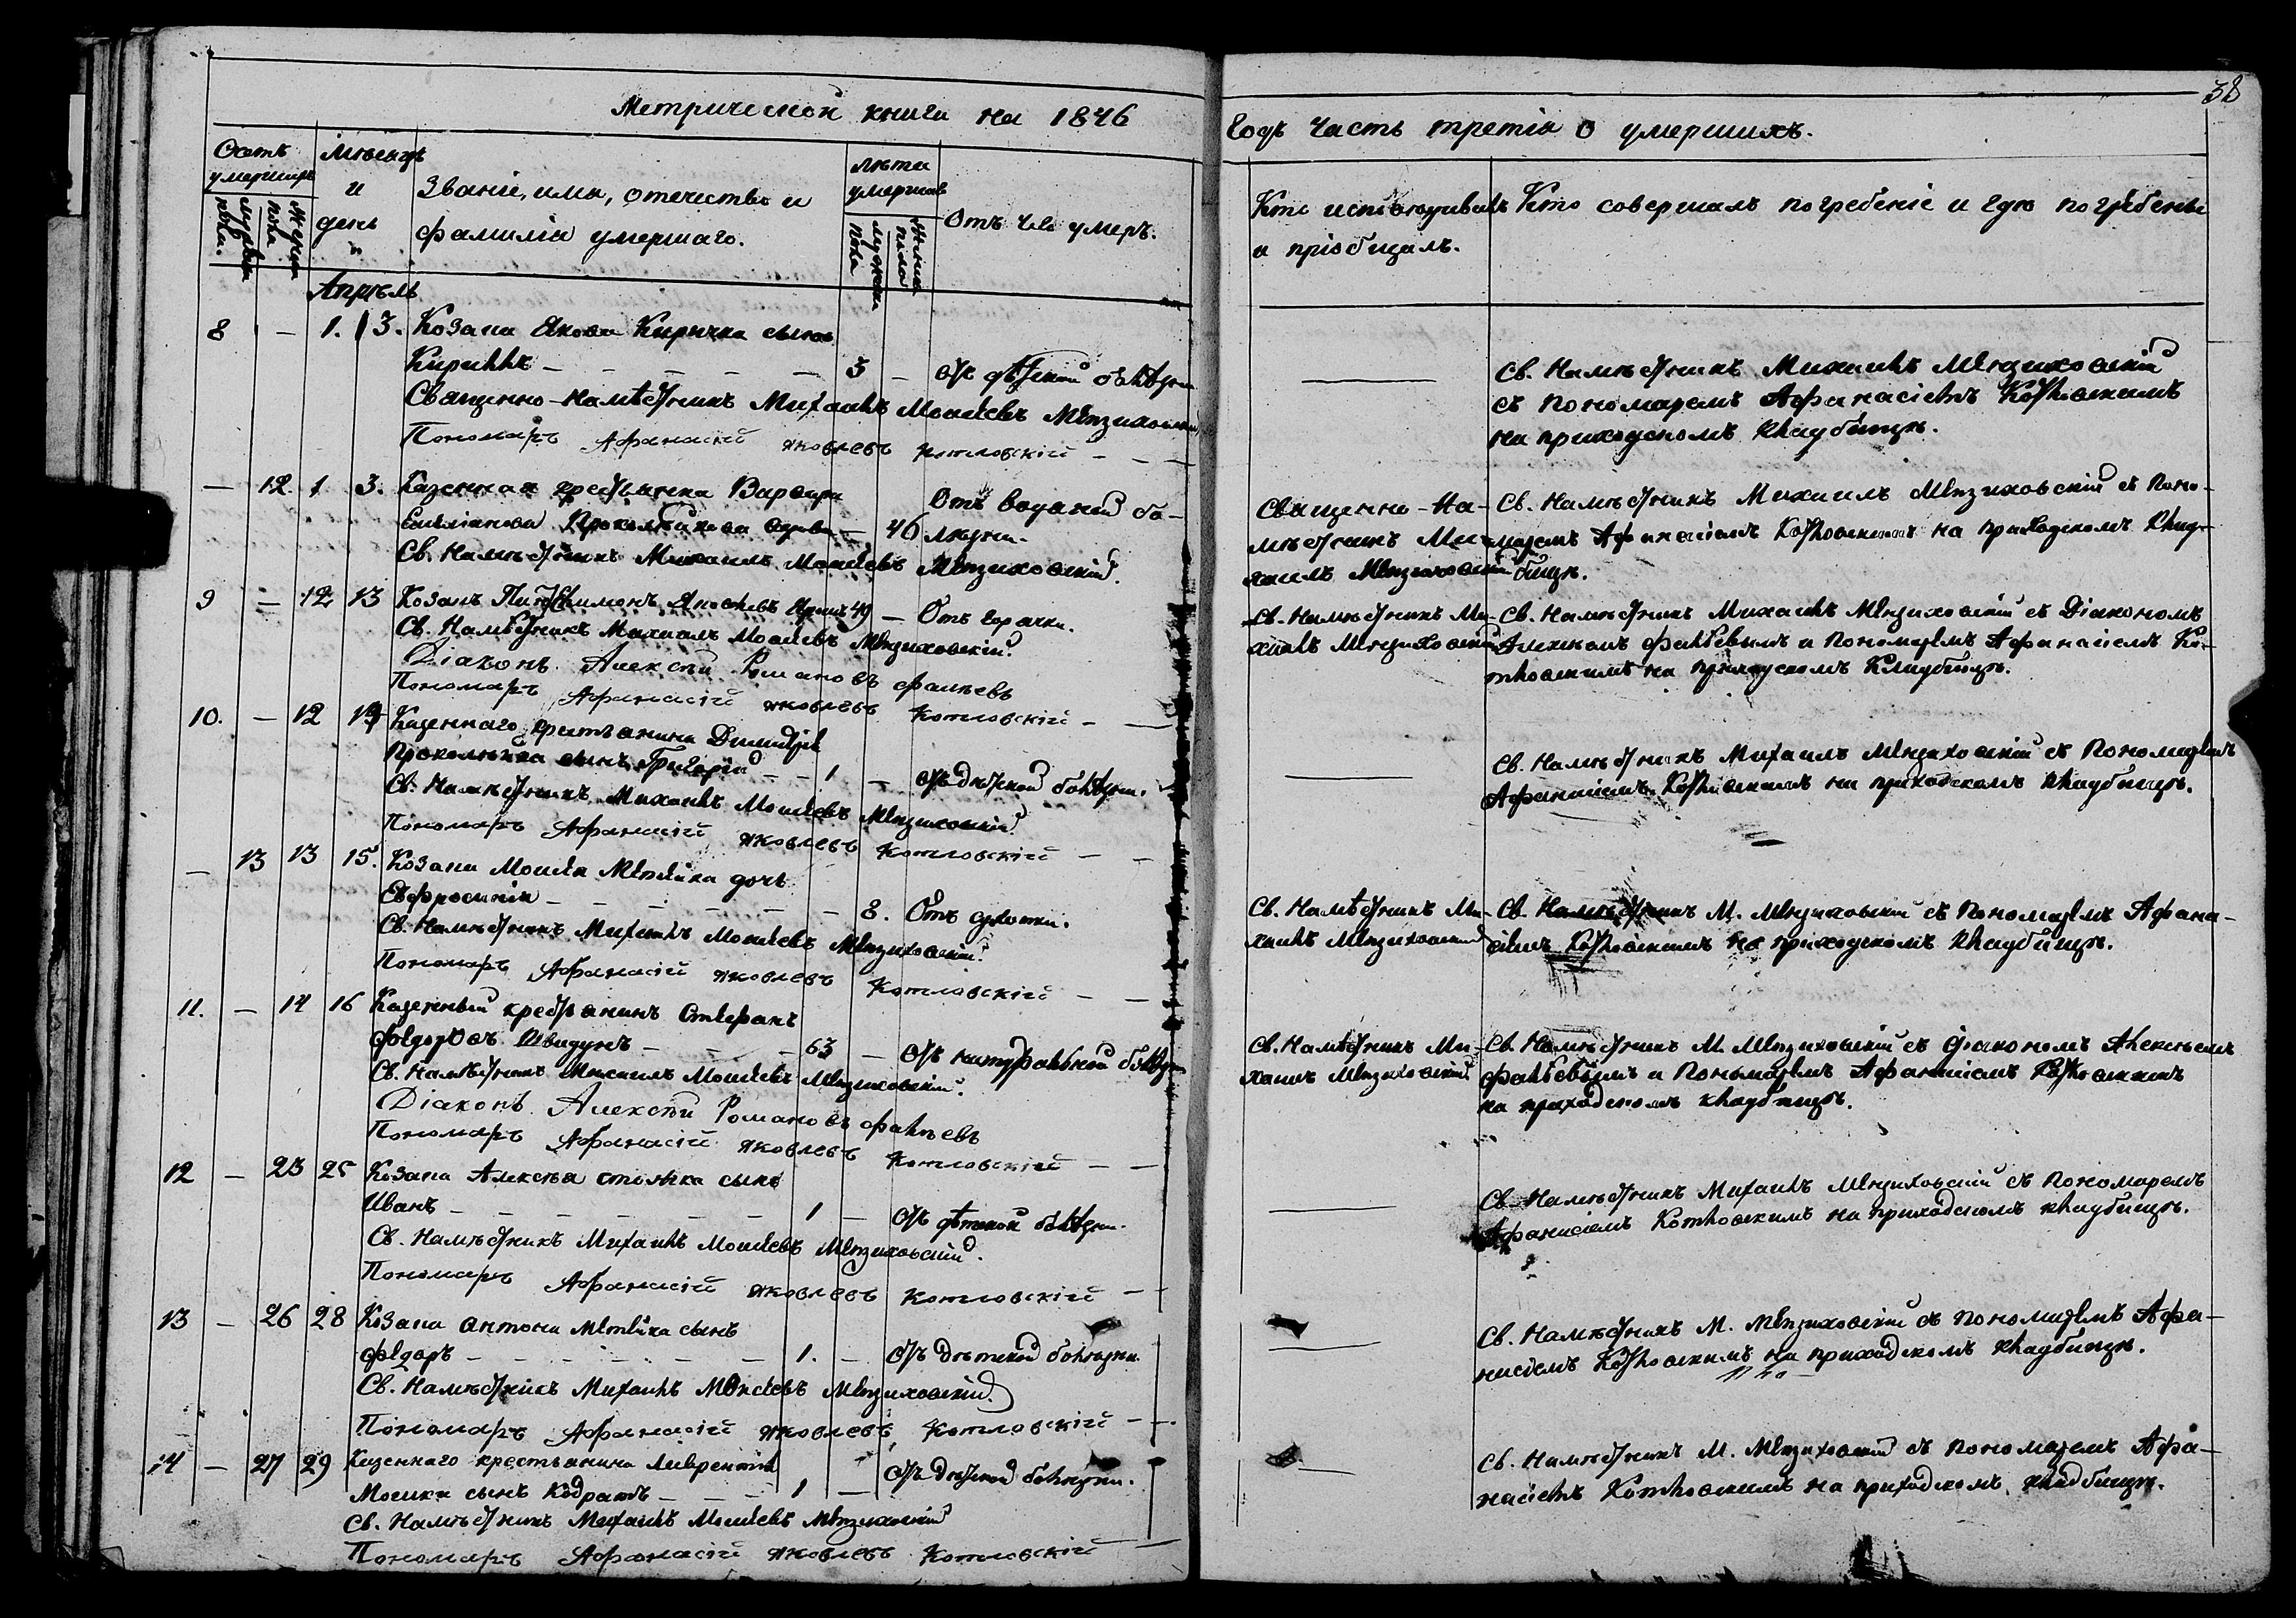 38
Метрической книги на 1846
Годъ Часть третія о умершихъ.
Счетъ умершихъ
Мѣсяцъ и день
Званіе, имя, отечество и фамилія умершаго.
лѣта умершаго
Отъ чего умеръ.
Кто исповѣдывалъ и пріобщалъ.
Кто совершалъ погребеніе и гдѣ погребены
мужеска пола.
женска пола
мужеска пола
женска пола
Апрѣль
8 — 1. 3. Козака Якова Кирычка сынъ
Кириллъ — 3 — отъ дѣтской болѣзни
Священно-Намѣстникъ Михаилъ Моисеевъ
Пономарь Афанасій Яковлевъ Котловскій — —
Св. Намѣстникъ Михаилъ
съ пономаремъ Афанасіемъ Котловскимъ
на приходскомъ кладбищѣ.
— 12. 1 3. Казенная крестьянка Варвара
Емиліанова вдова — 46 Отъ водяной бо-
лѣзни.
Св. Намѣстникъ Михаилъ Моисеевъ
Священно-На-
мѣстникъ Ми-
хаилъ
Св. Намѣстникъ Михаилъ съ Поно-
маремъ Афанасіемъ Котловскимъ на приходскомъ клад-
бищѣ.
9 — 12 13 Козакъ 49 — Отъ горячки.
Св. Намѣстникъ Михаилъ Моисеевъ
Діаконъ Алексѣй Романовъ Фалѣевъ
Пономарь Афанасій Яковлевъ Котловскій — —
Св. Намѣстникъ Ми-
хаилъ
Св. Намѣстникъ Михаилъ съ Діакономъ
Алексѣемъ Фалѣевымъ и Пономаремъ Афанасіемъ Ко-
тловскимъ на приходскомъ кладбищѣ.
10. — 12 Казеннаго крестьянина Димитрія
сынъ Григорій — — 1 — отъ дѣтской болѣзни.
Св. Намѣстникъ Михаилъ Моисеевъ
Пономарь Афанасій Яковлевъ Котловскій — —
Св. Намѣстникъ Михаилъ съ Пономаремъ
Афанасіемъ Котловскимъ на приходскомъ кладбищѣ.
— 13 13 15. Козака Моисея дочь
Евфросинія — 8. Отъ
Св. Намѣстникъ Михаилъ Моисеевъ
Пономарь Афанасій Яковлевъ Котловскій — —
Св. Намѣстникъ Ми-
хаилъ
Св. Намѣстникъ М. съ Пономаремъ Афана-
сіемъ Котловскимъ на приходскомъ кладбищѣ.
11. — 14 16 Казенный крестьянинъ Стефанъ
Федоровъ — 63 — отъ натуральной болѣзни
Св. Намѣстникъ Михаилъ Моисеевъ
Діаконъ Алексѣй Романовъ Фалѣевъ
Пономарь Афанасій Яковлевъ Котловскій — —
Св. Намѣстникъ Ми-
хаилъ
Св. Намѣстникъ М. съ діакономъ Алексѣемъ
Фалѣевымъ и Пономаремъ Афанасіемъ Котловскимъ
на приходскомъ кладбищѣ.
12 — 23 25 Козака Алексѣя сынъ
Иванъ — 1 — отъ дѣтской болѣзни.
Св. Намѣстникъ Михаилъ Моисеевъ
Пономарь Афанасій Яковлевъ Котловскій — —
Св. Намѣстникъ Михаилъ съ Пономаремъ
Афанасіемъ Котловскимъ на приходскомъ кладбищѣ.
13 — 26 28 Козака Антона сынъ
Федоръ — 1. — отъ дѣтской болѣзни.
Св. Намѣстникъ Михаилъ Моисеевъ
Пономарь Афанасій Яковлевъ Котловскій — —
Св. Намѣстникъ М. съ Пономаремъ Афа-
насіемъ Котловскимъ на приходскомъ кладбищѣ.
14 — 27 29 Казеннаго крестьянина Лаврентія
сынъ Кодратъ — 1 — отъ дѣтской болѣзни.
Св. Намѣстникъ Михаилъ Моисеевъ
Пономарь Афанасій Яковлевъ Котловскій —
Св. Намѣстникъ М. съ пономаремъ Афа-
насіемъ Котловскимъ на приходскомъ кладбищѣ.